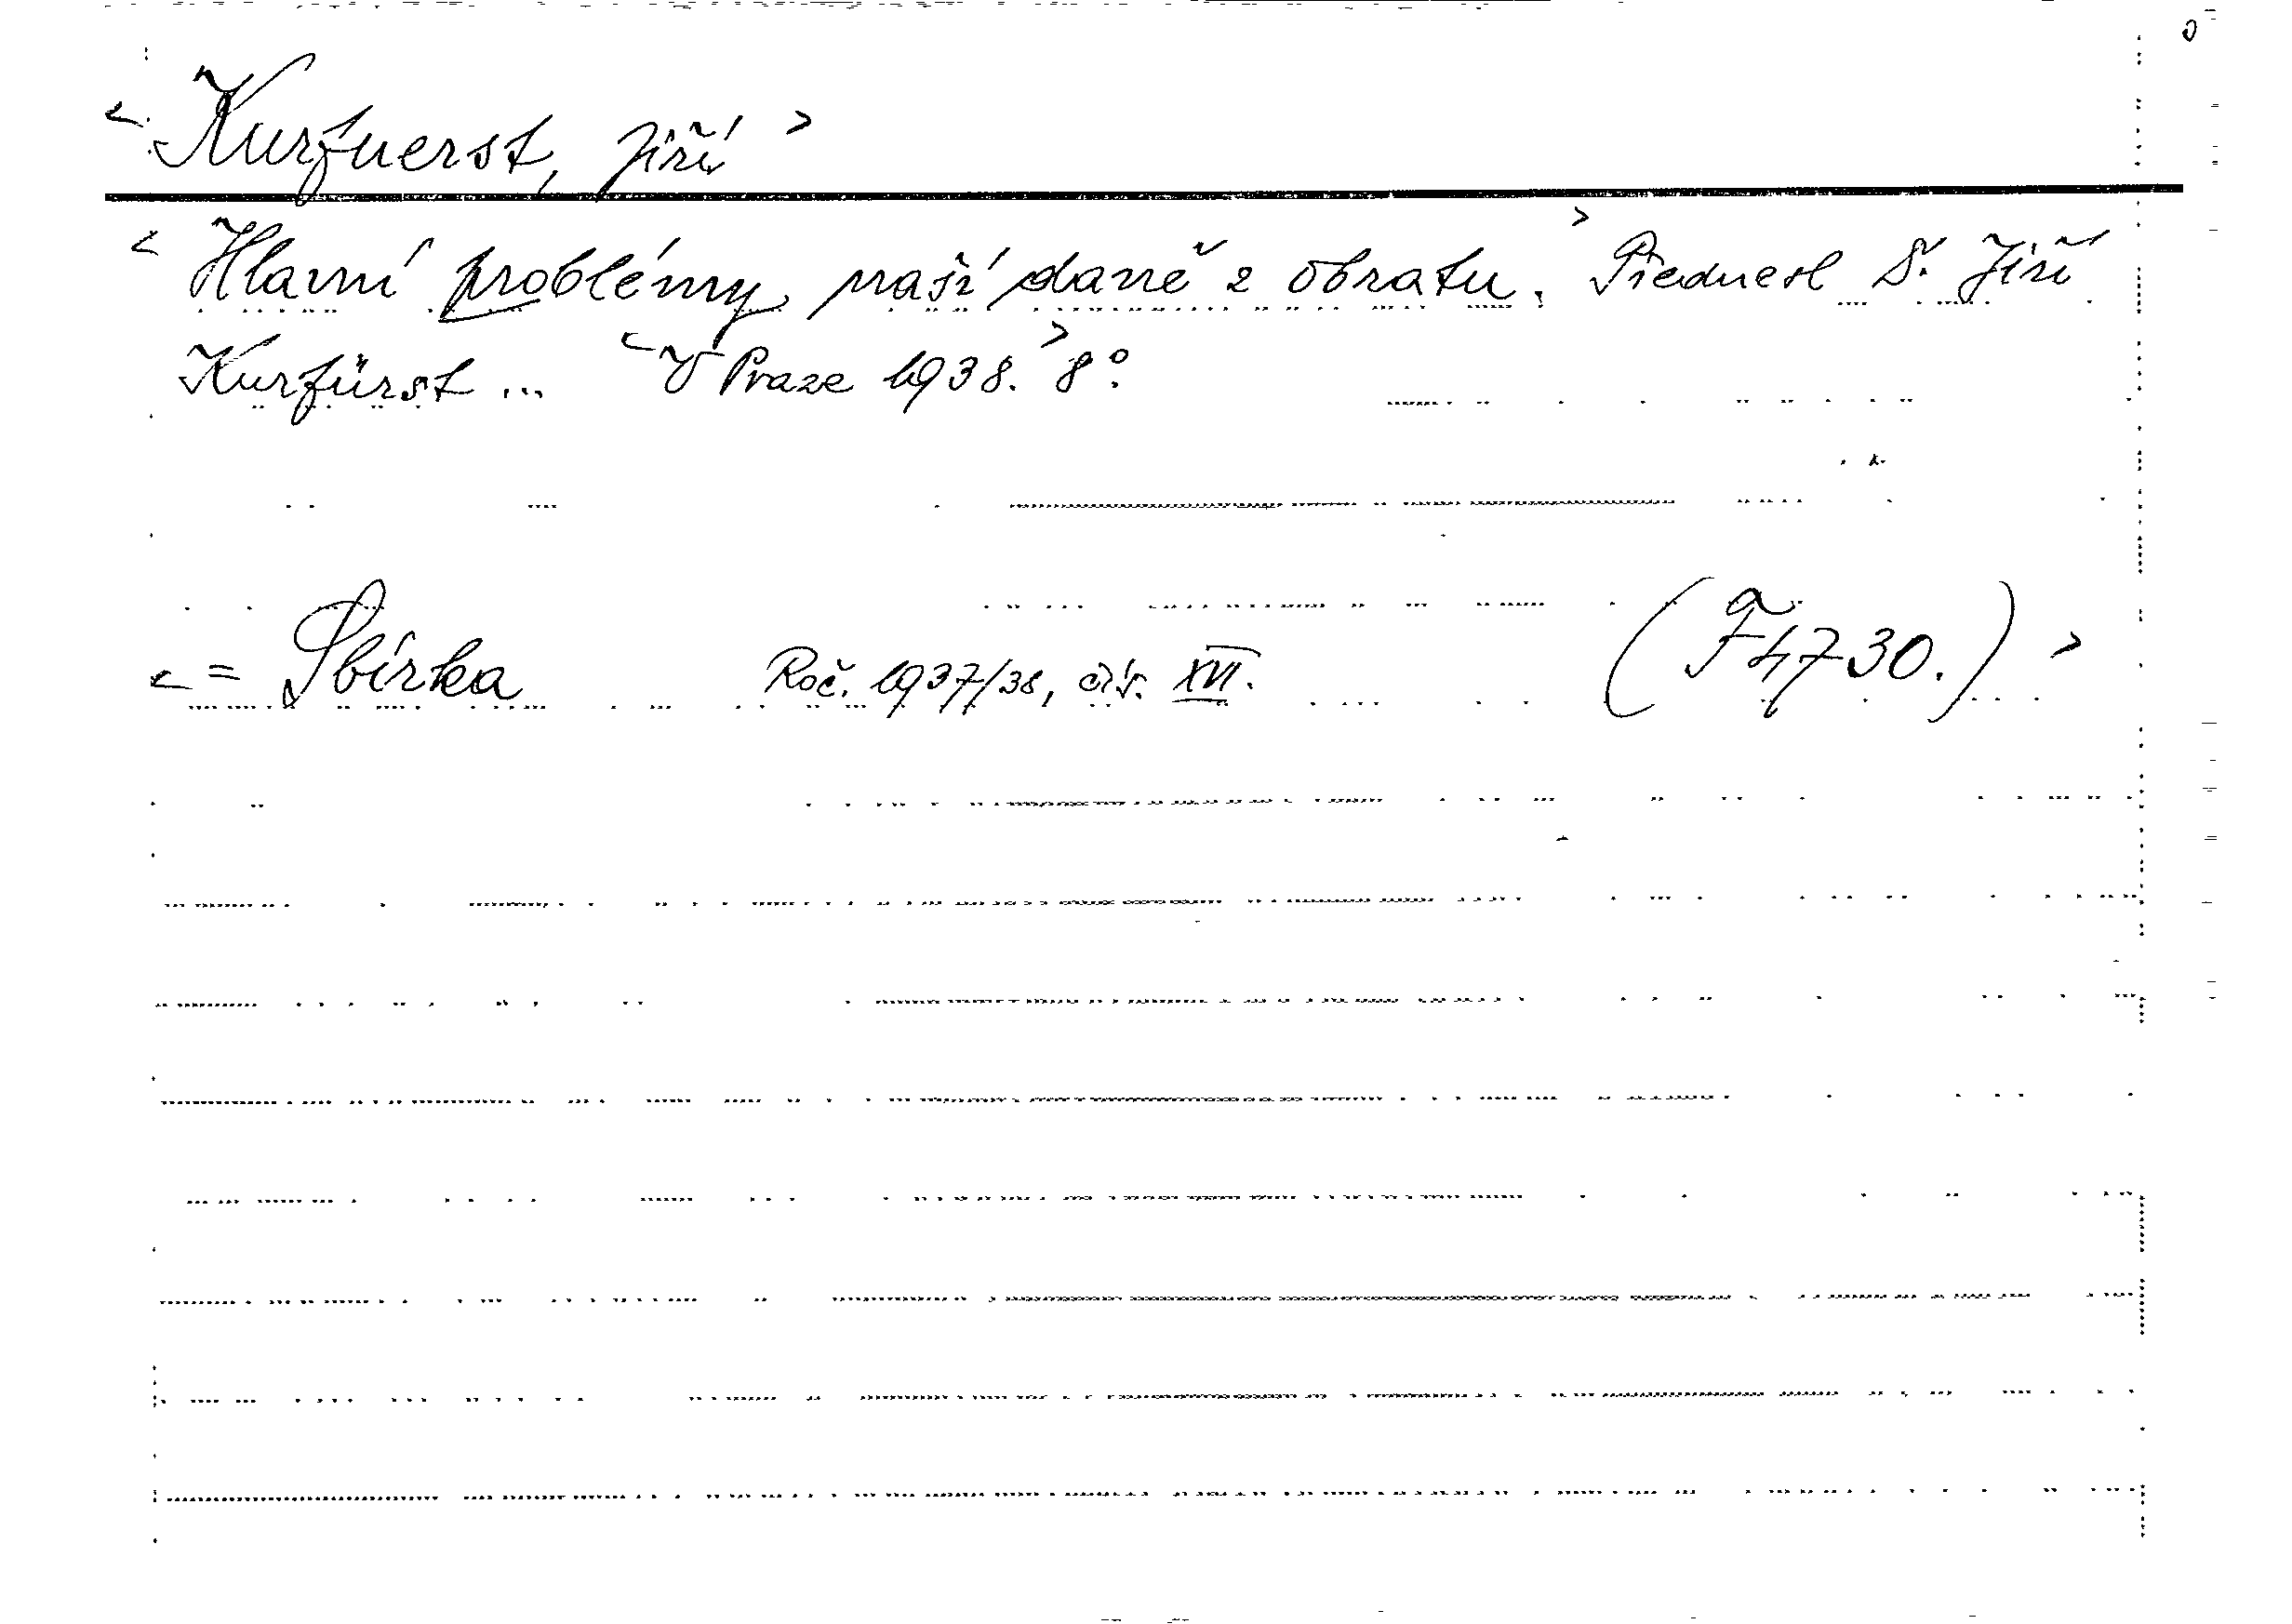 < Kurfuerst, Jiří >
< Hlavní problémy naší daně z obratu. > Přednesl Dr. Jiří
Kurfürst ... < V Praze 1938. > 8°.
< = Sbírka Roč. 1937/38, čís. XVI. (F4730.) >